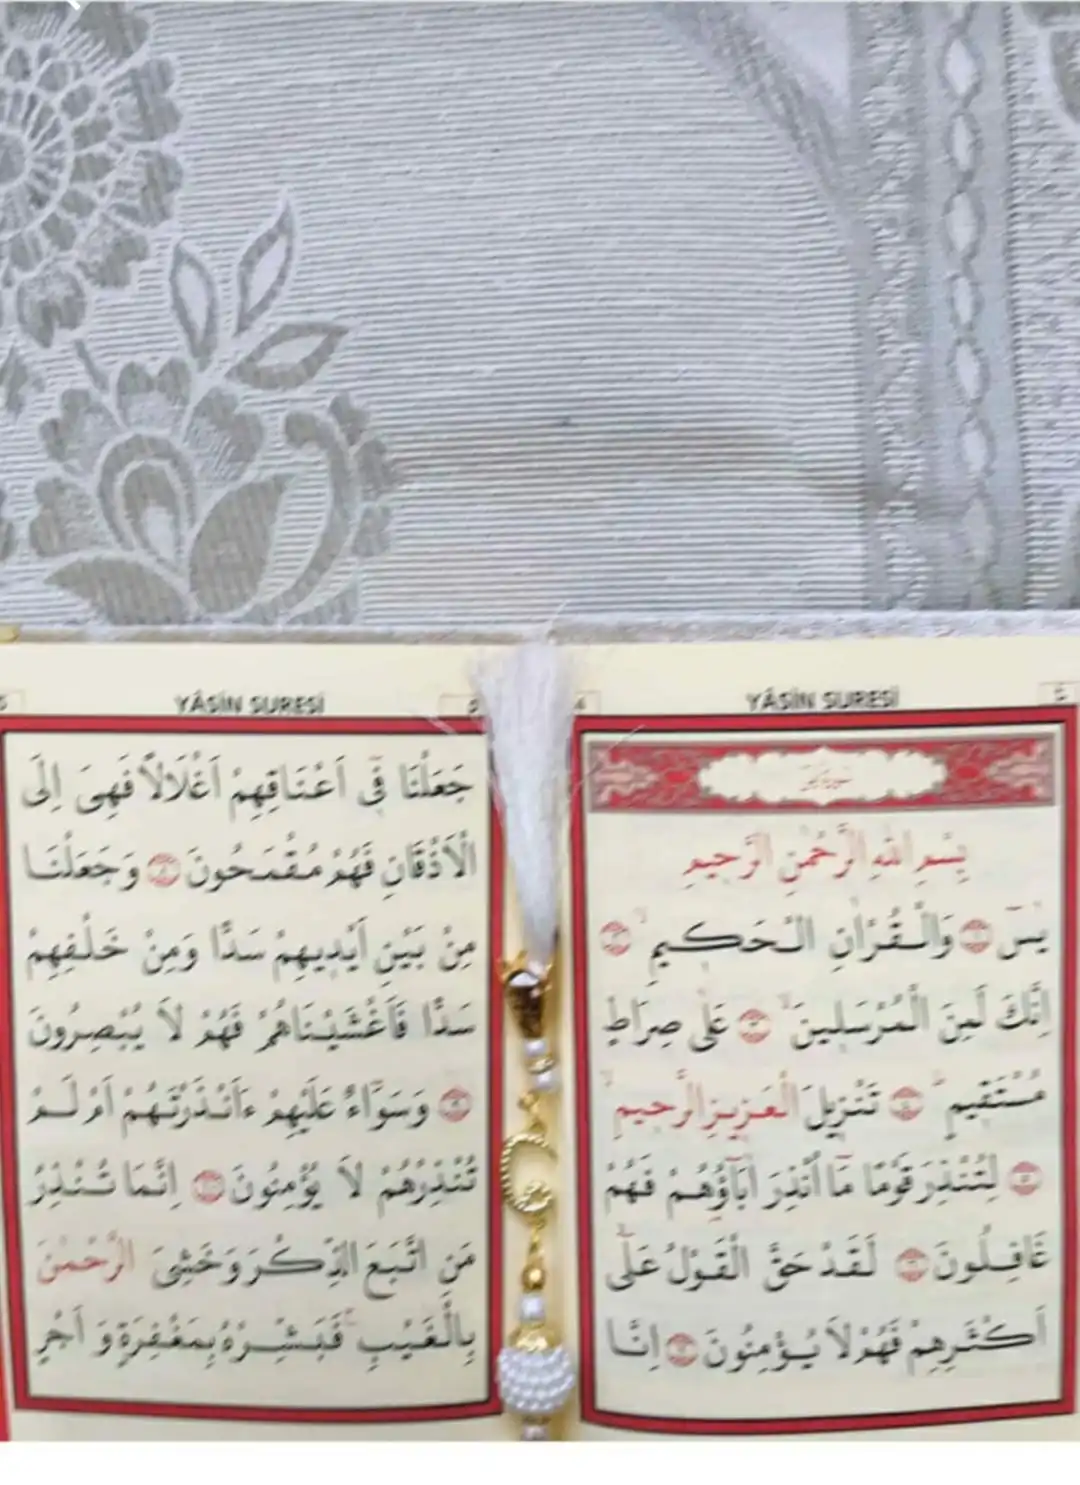 YÂSİN SURESİ
بِسْمِ اللّٰهِ الرَّحْمٰنِ الرَّحِيمِ
يٰسٓ ۝ وَالْقُرْاٰنِ الْحَكِيمِ ۝
اِنَّكَ لَمِنَ الْمُرْسَلِينَ ۝ عَلٰى صِرَاطٍ
مُسْتَقِيمٍ ۝ تَنْزِيلَ الْعَزِيزِ الرَّحِيمِ
۝ لِتُنْذِرَ قَوْمًا مَٓا اُنْذِرَ اٰبَٓاؤُهُمْ فَهُمْ
غَافِلُونَ ۝ لَقَدْ حَقَّ الْقَوْلُ عَلٰٓى
اَكْثَرِهِمْ فَهُمْ لَا يُؤْمِنُونَ ۝ اِنَّا
YÂSİN SURESİ
جَعَلْنَا فِٓى اَعْنَاقِهِمْ اَغْلَالًا فَهِىَ اِلَى
الْاَذْقَانِ فَهُمْ مُقْمَحُونَ ۝ وَجَعَلْنَا
مِنْ بَيْنِ اَيْدِيهِمْ سَدًّا وَمِنْ خَلْفِهِمْ
سَدًّا فَاَغْشَيْنَاهُمْ فَهُمْ لَا يُبْصِرُونَ
۝ وَسَوَٓاءٌ عَلَيْهِمْ ءَاَنْذَرْتَهُمْ اَمْ لَمْ
تُنْذِرْهُمْ لَا يُؤْمِنُونَ ۝ اِنَّمَا تُنْذِرُ
مَنِ اتَّبَعَ الذِّكْرَ وَخَشِىَ الرَّحْمٰنَ
بِالْغَيْبِ فَبَشِّرْهُ بِمَغْفِرَةٍ وَ اَجْرٍ